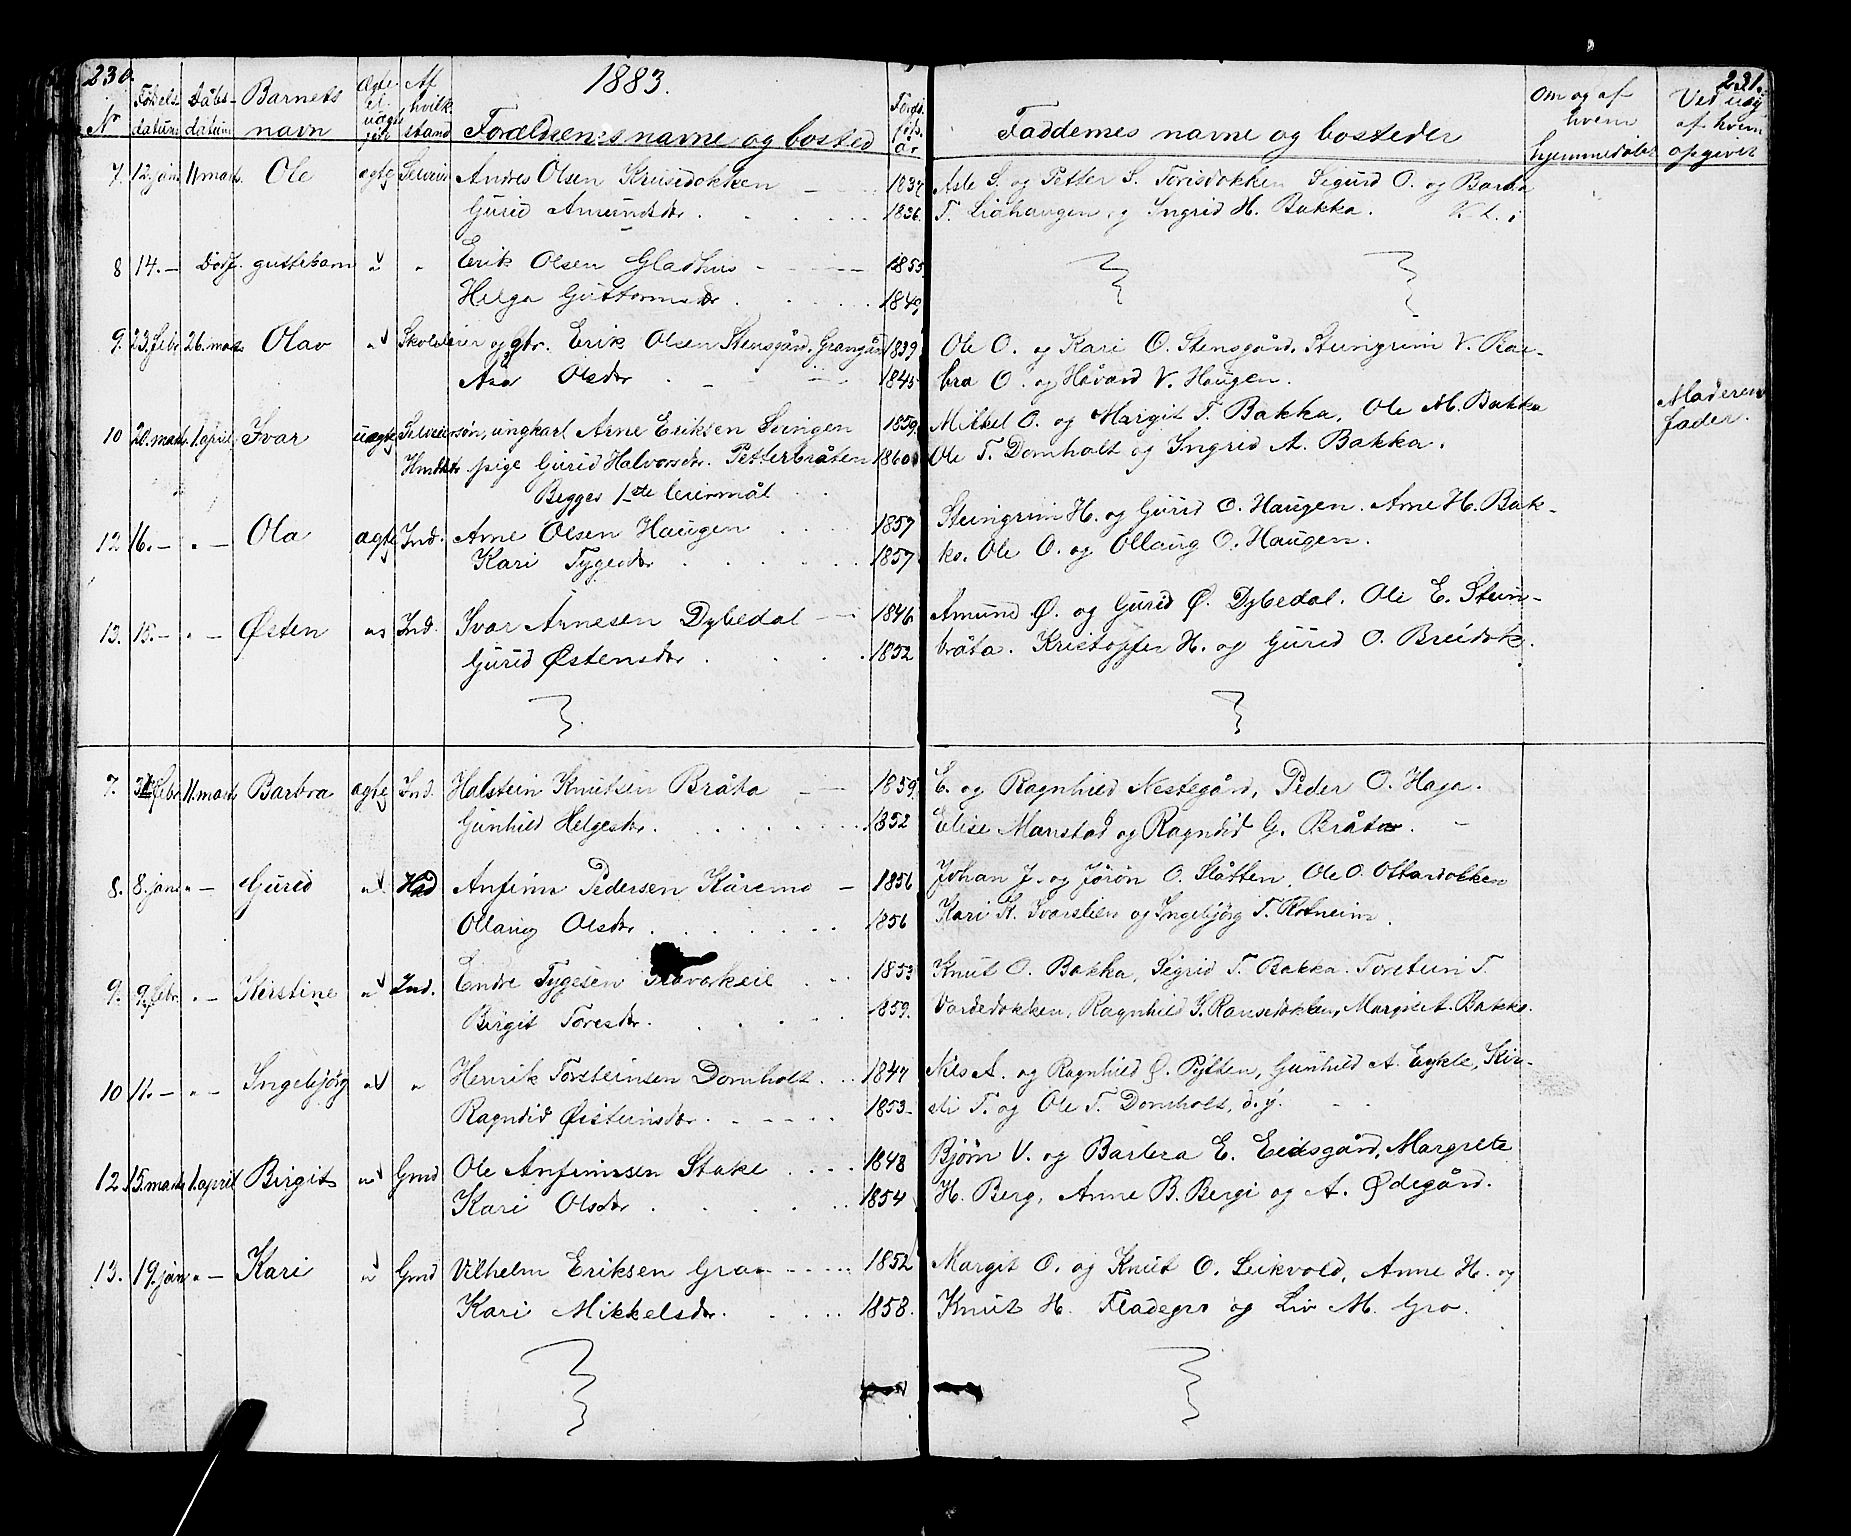 230.
1883.
231.
N Fødels datum Dåbs- datum Barnets navn Ægte el. uægte Af hvilk. stand Forældrenes navne og bosted Foræl. føds. år Faddernes navne og bosteder Om og af hvem hjemmedøbt Ved uæg. af hvem opgivet
7. 12. jan. 11 marts. Ole ægte Selveier Andres Olsen 1834 Asle S. og Petter S. Torisdokken Sigurd O. og Barbra
Gurid Amundsdr. 1836. T. Lidhaugen og Ingrid H. Bakka.
8 14. – Dødf. guttebarn " " Erik Olsen Gladhus 1855.
Helga Guttormsdr. 1849
9. 23. febr 26. marts Olav " Skolelærer og gbr. Erik Olsen Stensgård, 1839 Ole O. og Kari O. Stensgård, Steingrim V. Bar-
Asa Olsdr. 1845 bra O. og Håvard V. Haugen.
10 20. marts 1. april Ivar uægte Selveiersøn, ungkarl Arne Eriksen Svingen 1859. Mikkel O. og Margit T. Bakka, Ole M. Bakka Moderens
pige Gurid Halvorsdr. Petterbråten 1860 Ole T. Domholt og Ingrid A. Bakka. fader.
Begges 1ste leiermål
12 16. – " – Ola ægte Ind. Arne Olsen Haugen 1857 Steingrim H. og Gurid O. Haugen. Arne H. Bak-
Kari Tygesdr 1857 ka. Ole O. og Ollaug O. Haugen.
13. 15. – " – Østen " Ind. Ivar Arnesen Dybedal 1846 Amund Ø. og Gurid Ø. Dybedal. Ole E. Stein-
Gurid Østensdr. 1852 bråta. Kristoffer H. og Gurid O. Breidok.
7. febr 11. marts Barbra ægte Ind. Halstein Knutsen Bråta 1859. E. og Ragnhild Nestegård, Peder O. Haga.
Gunhild Helgesdr. 1852 Elise Manstad og Ragndid G. Bråta.
8. 8. jan. " – Gurid " Anfinn Pedersen Kåremo 1856 Johan J. og Jørøn O. Slåtten. Ole O. Ottardokken
Ollaug Olsdr. 1856 Kari K. Ivarslien og Ingebjørg T. Rotneim.
9. 9. febr. " – Kirstine " Ind. Endre Tygesen 1853 Knut O. Bakka, Sigrid T. Bakka. Torstein T.
Birgit Toresdr. 1859. Vardedokken, Ragnhild S. Ransedokken, Margit A. Bakka.
10 11. – " – Ingebjørg " " Henrik Torsteinsen Domholt. 1847 Nils A. og Ragnhild O. Pytten, Gunhild A. Eykle, Kir-
Ragndid Østeinsdr. 1853 sti T. og Ole T. Domholt, d. y.
12. 15. marts 1. april Birgit " Gmd Ole Anfinnsen Stake 1848 Bjørn V. og Barbra E. Eidsgård, Margrete
Kari Olsdr 1854 H. Berg, Anne B. Bergi og A. Ødegård.
13. 19. jan " – Kari " Gmd Vilhelm Eriksen Gra 1852 Margit O. og Knut O. Leikvold, Anne H. og
Kari Mikkelsdr. 1858. Knut H. Fladegro og Liv M. Gro.